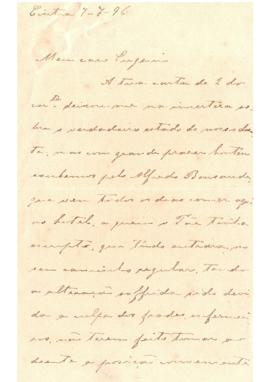 Cintra 7-7-96
Meu caro Eugenio
A tua carta de 2 do
cor.te deixou-me na incerteza so-
bre o verdadeiro estado do nosso doen-
te, mas com grande prazer hontem
soubemos pelo Alfredo Bensaude,
que vem todos os dias comer aqui
no hotel, a quem o Pae tinha
escripto, que tudo entrára, no
seu caminho regular, tendo
a alteração soffrida sido devi-
da a culpa dos frades enfermei-
ros, não terem feito tomar ao
doente a posição conveniente